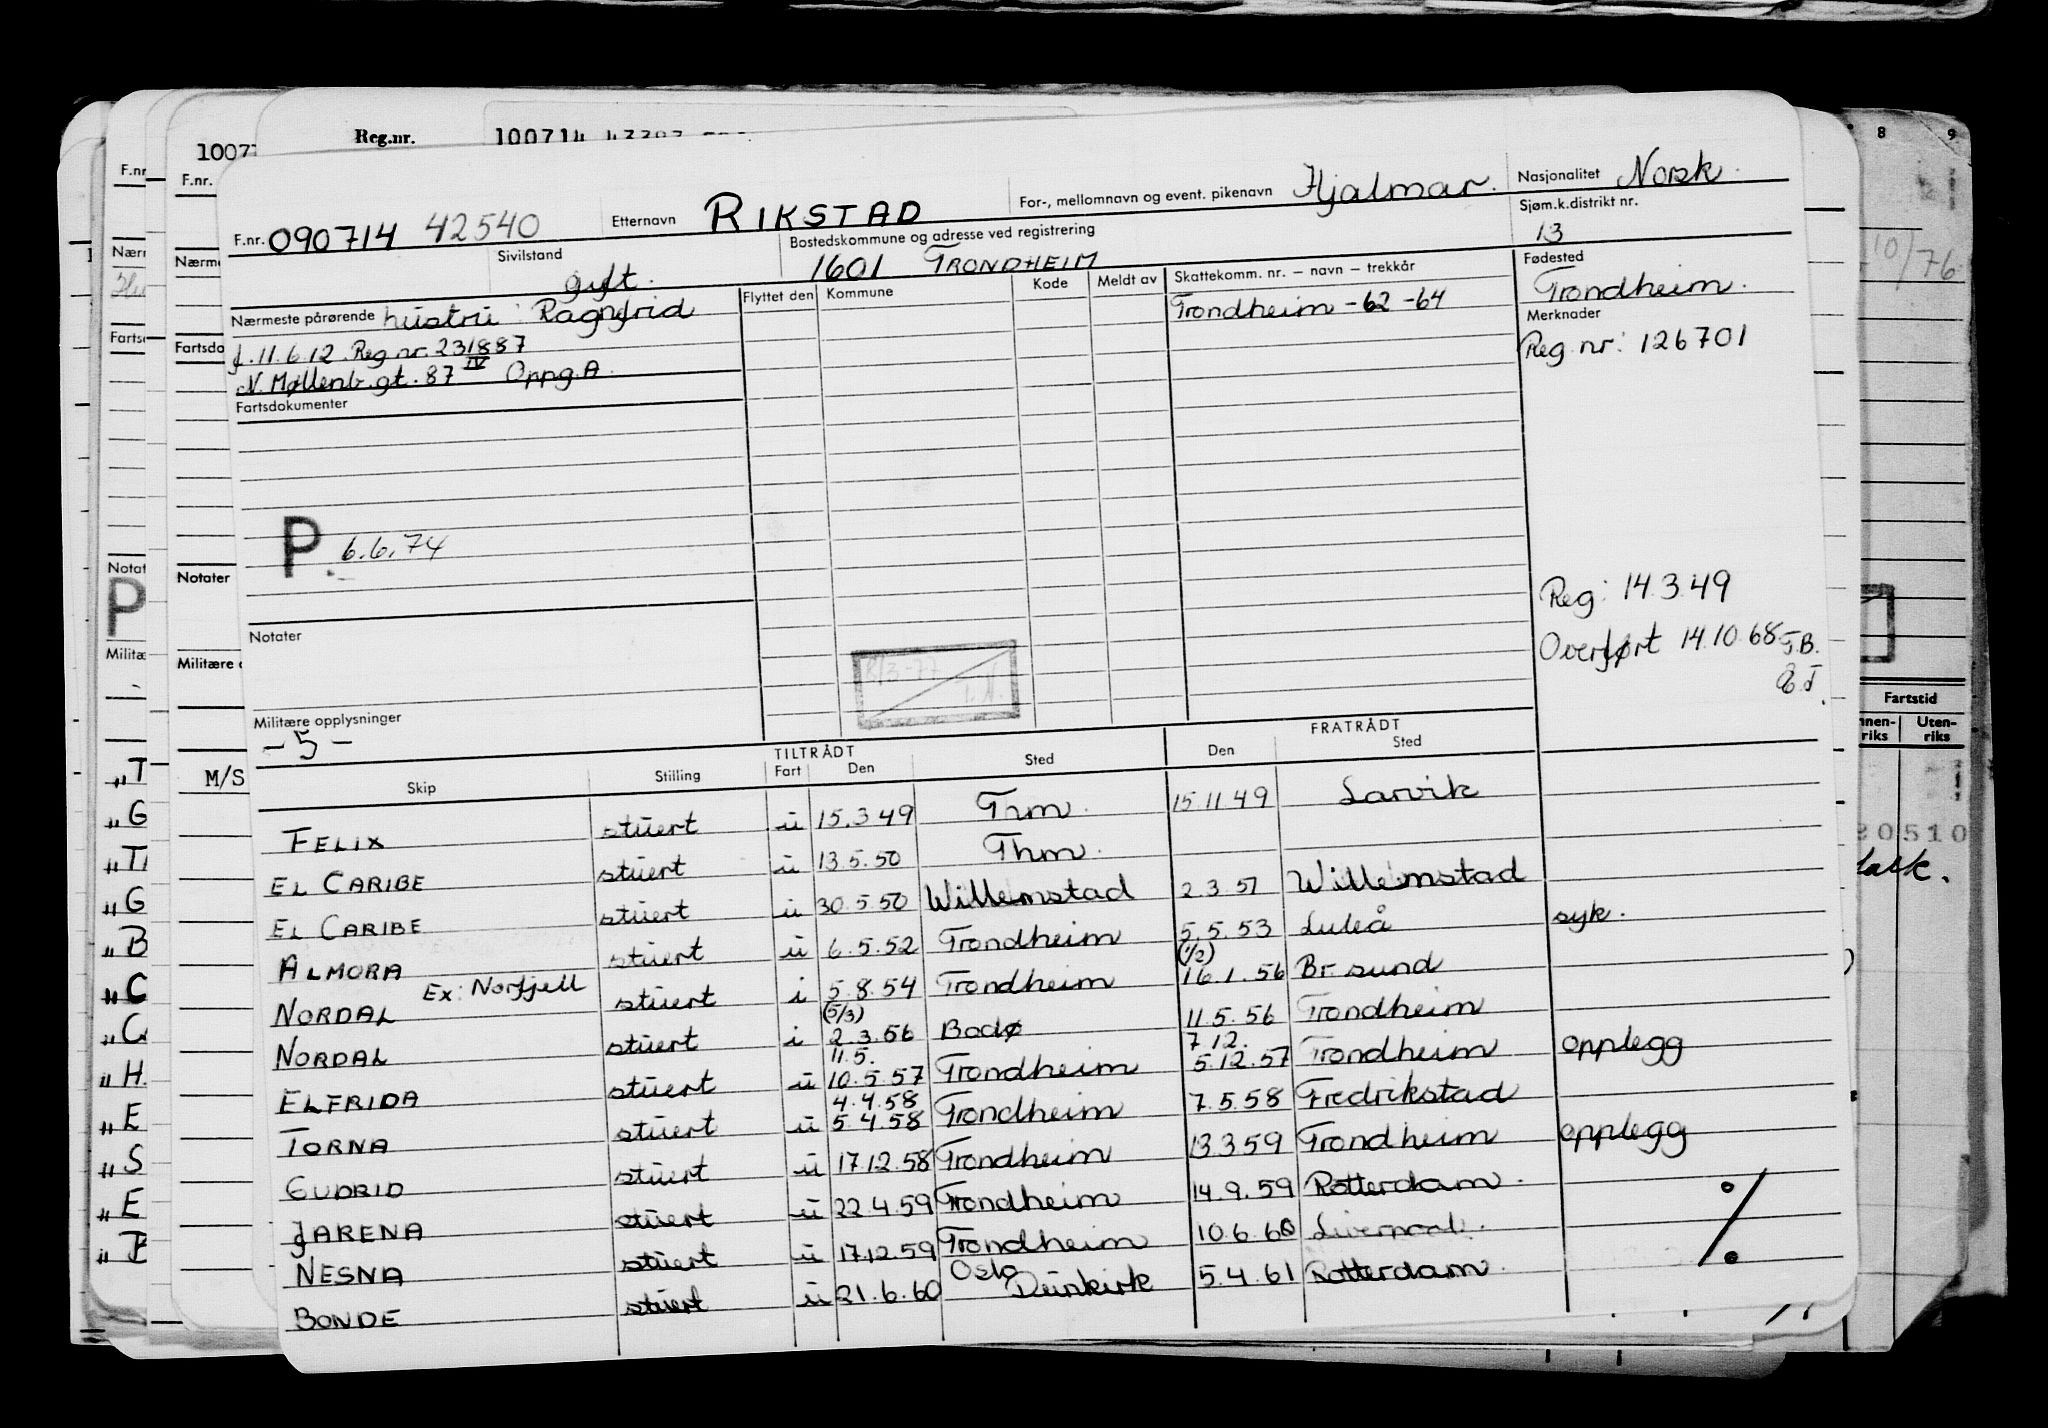 Reg.nr. 100714
1007
F.nr.
F.nr. 090714 42540 Etternavn RIKSTAD For-, mellomnavn og event. pikenavn Hjalmar. Nasjonalitet Norsk.
Sivilstand gift. Bostedskommune og adresse ved registrering 1601 TRONDHEIM Sjøm.k.distrikt nr. 13
Nærmeste pårørende hustru: Ragnfrid Flyttet den Kommune Kode Meldt av Skattekomm. nr. – navn – trekkår Fødested
f. 11.6.12. Reg nr. 231887 Trondheim -62 -64 Trondheim.
N. Møllenb. gt. 87 IV Oppg.A. Merknader
Fartsdokumenter Reg. nr: 126701
P. 6.6.74
Reg: 14.3.49
Notater
Overført 14.10.68 J.B.
Militære opplysninger
-5-
TILTRÅDT FRATRÅDT
Skip Stilling Fart Den Sted Den Sted
FELIX stuert u 15.3.49 Thm. 15.11.49 Larvik
EL CARIBE stuert u 13.5.50 Thm.
EL CARIBE stuert u 30.5.50 Willemstad 2.3.51 Willemstad
ALMORA stuert u 6.5.52 Trondheim 5.5.53 Luleå syk.
NORDAL Ex: Norfjell stuert i 5.8.54 Trondheim (1/2) 16.1.56 Br. sund
NORDAL stuert i (5/3) 2.3.56 Bodø 11.5.56 Trondheim
ELFRIDA stuert u 11.5. 10.5.57 Trondheim 7.12. 5.12.57 Trondheim opplegg
TORNA stuert u 4.4.58 5.4.58 Trondheim 7.5.58 Fredrikstad
GUDRID stuert u 17.12.58 Trondheim 13.3.59 Trondheim opplegg
JARENA stuert u 22.4.59 Trondheim 14.9.59 Rotterdam.
NESNA stuert u 17.12.59 Trondheim 10.6.60 Liverpool.
BONDE stuert u 21.6.60 Oslo Dunkirk 5.4.61 Rotterdam.
%
F.nr.
Nærme
Fartsdo
Notater
Militære
M/S
P
„T
„G
„T
„G
„B
„C
„C
„H
„E
„S
„E
8 9
10/76
Fartstid
Uten-
riks
20510